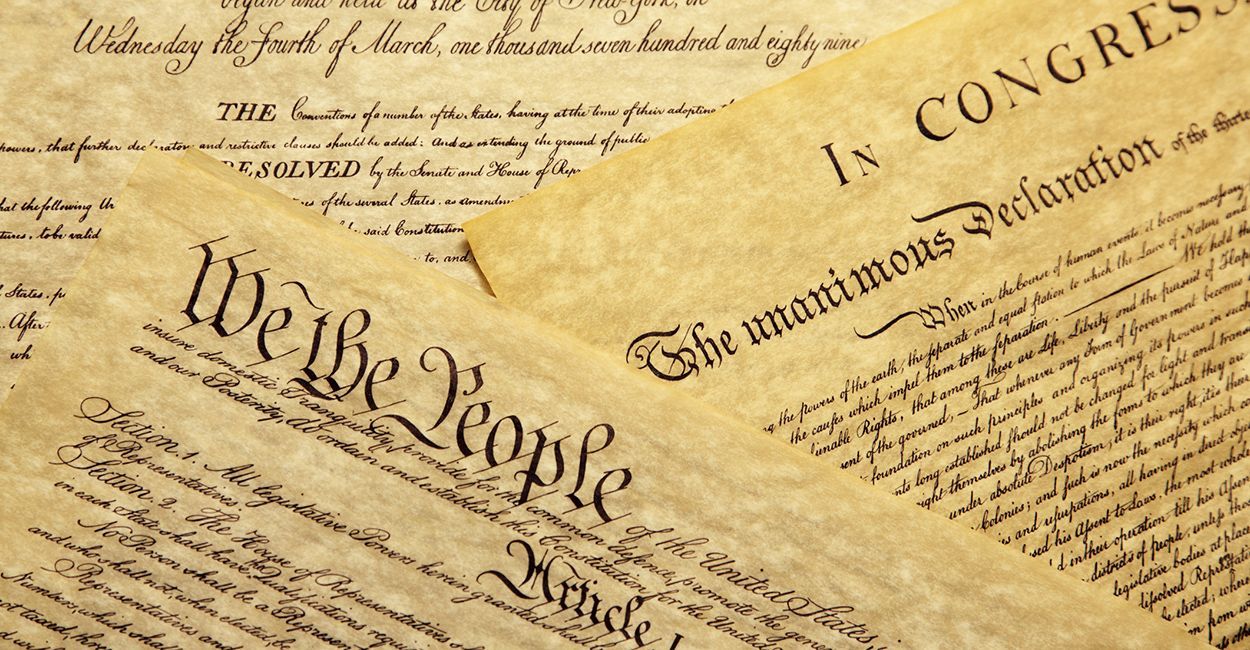 and held at the City of New-York, on
Wednesday the fourth of March, one thousand seven hundred and eighty nine
THE Conventions of a number of the States, having at the time of their adopting
powers, that further and restrictive clauses should be added: And as extending the ground of public
RESOLVED by the Senate and House of
that the following
of the several States, as
tures, to be valid
said Constitution
to, and
States,
After
We the People of the United States,
insure domestic Tranquility, provide for the common defence, promote the
and our Posterity, do ordain and establish this Constitution for the United
Article
Section. 1. All legislative Powers herein granted shall
of Representatives.
Section. 2. The House of Representatives
in each State shall have Qualifications
No Person shall be a
and who shall not, when elected, be
Representatives and
Numbers, which shall
not taxed,
IN CONGRESS
The unanimous Declaration of the
When in the Course of human events, it becomes necessary
the powers of the earth, the separate and equal station to which the Laws of Nature and
the causes which impel them to the separation. We hold
that among these are Life, Liberty and the pursuit of
of the governed, — That whenever any Form of Government becomes
foundation on such principles and organizing its powers in such
long established should not be changed for light and
themselves by abolishing the forms to which they are
under absolute Despotism, it is their right, it is their
Colonies; and such is now the necessity which
and usurpations, all having in direct
his Assent to Laws, the most
in their operation till his
districts of people, unless
legislative bodies at
dissolved
be elected;